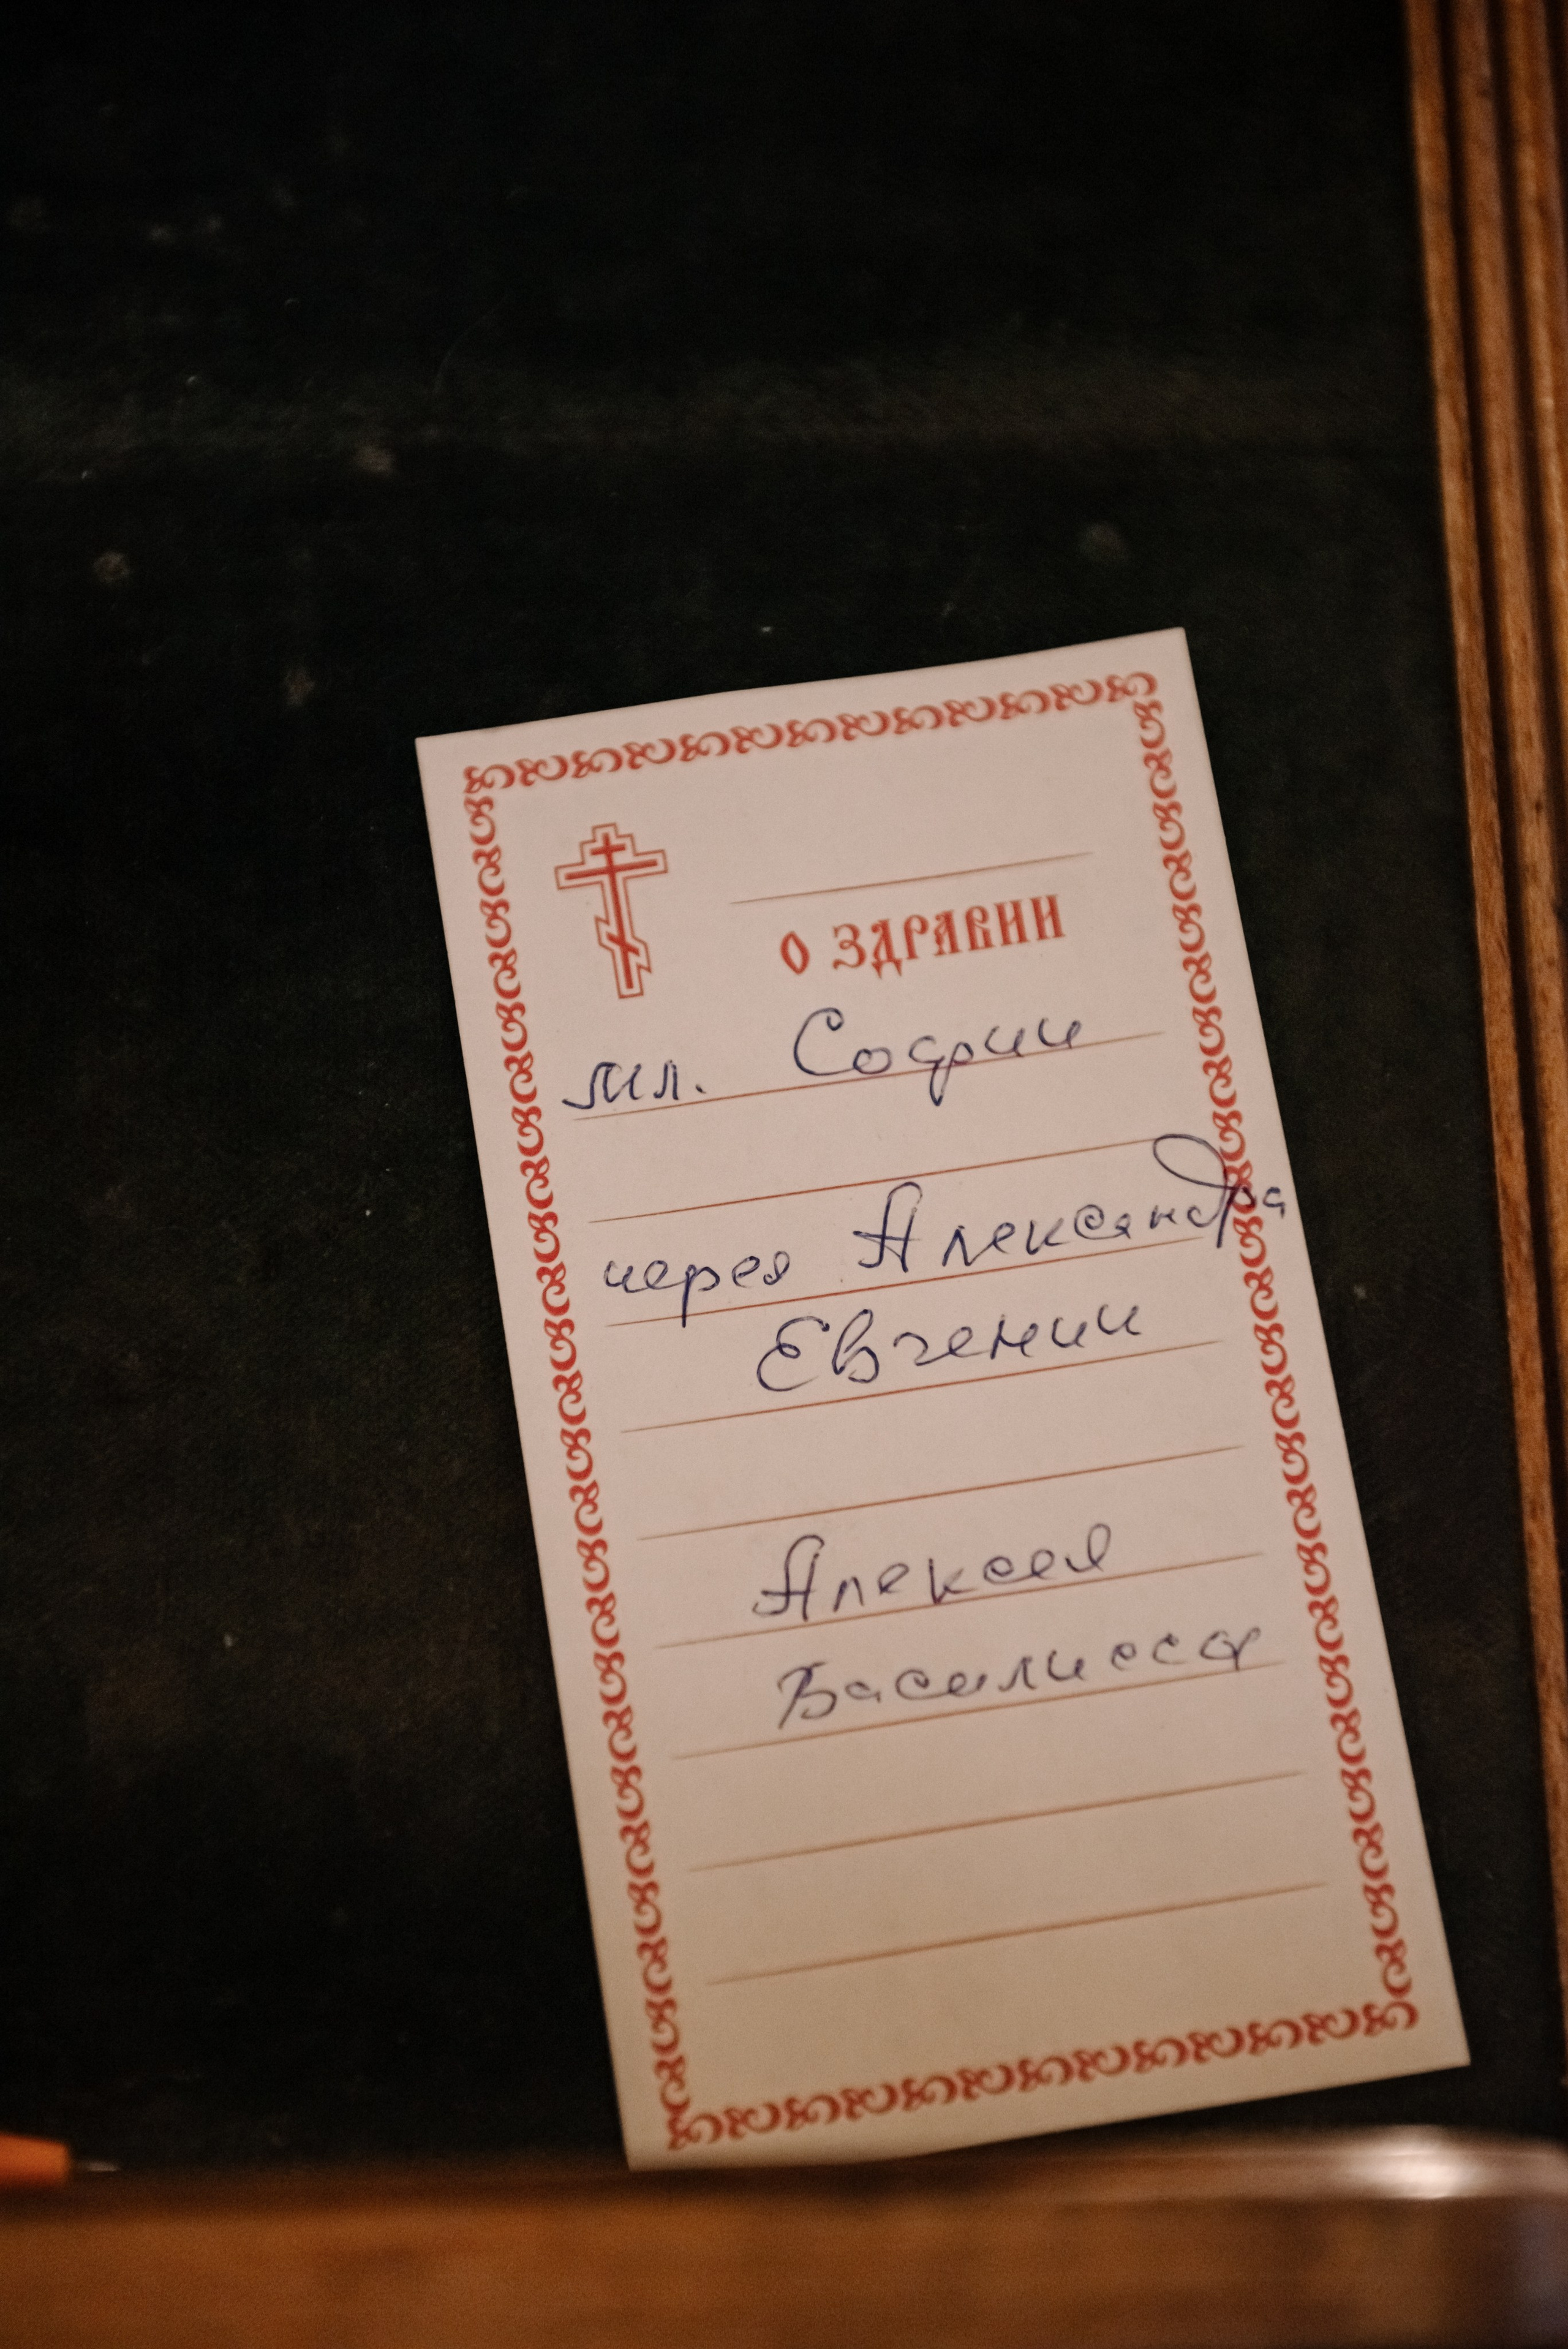 О ЗДРАВИИ
мл. Софии
иерея Александра
Евгении
Алексея
Василисса